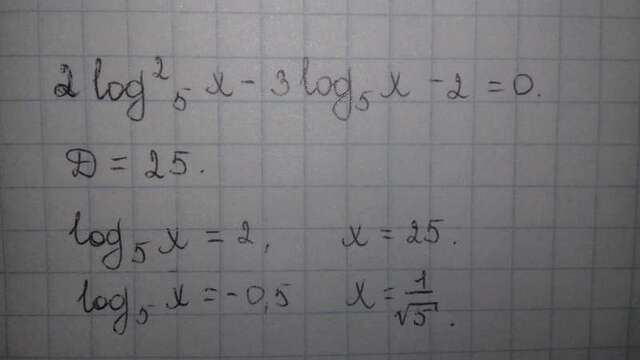 2 log²₅ x - 3 log₅ x - 2 = 0.
D = 25.
log₅ x = 2, x = 25.
log₅ x = -0,5 x = 1/√5.